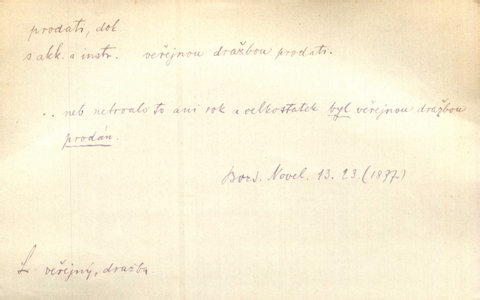 prodati, dok.
s akk. a instr. veřejnou dražbou prodati.
.. neb netrvalo to ani rok a velkostatek byl veřejnou dražbou
prodán.
Bozs. Novel. 13. 23 (1877)
L. veřejný, dražba.